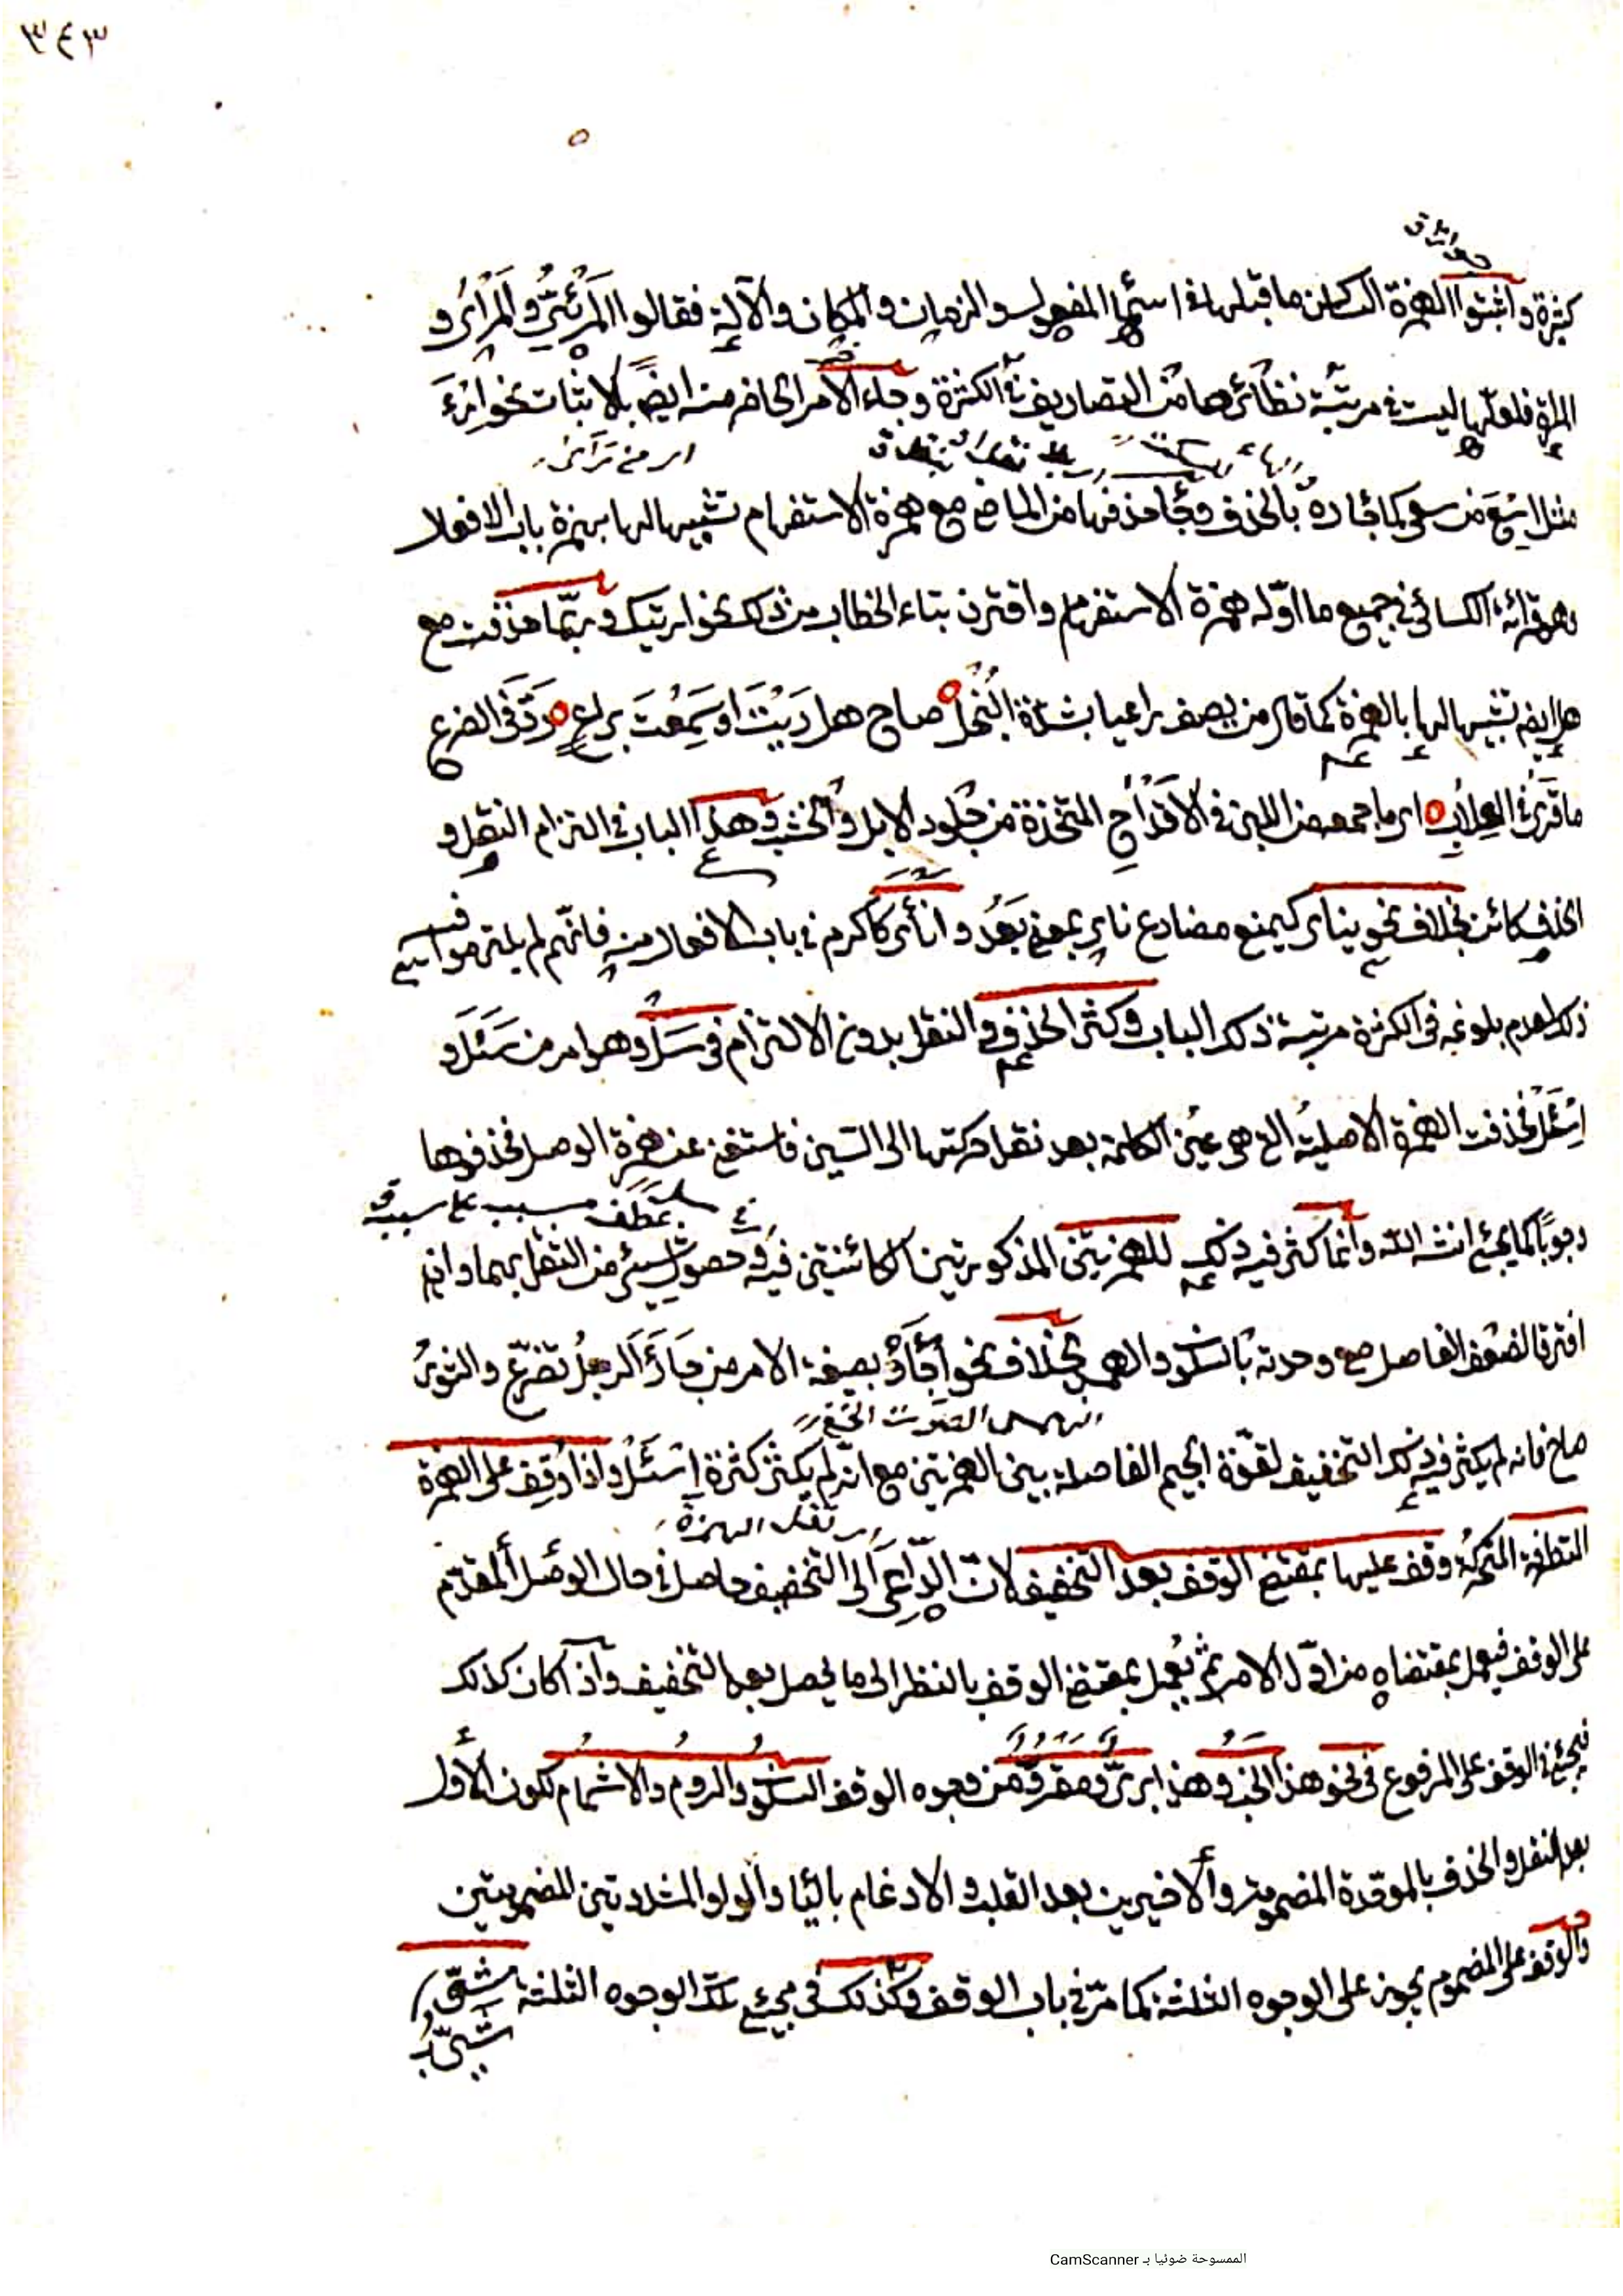 ٣٤٣
كثرة واثبتوا الهمزة الساكن ما قبلها في اسمي المفعول والزمان والمكان والآلة فقالوا المَرْئيّ والمَرْأى و
المرآة فلعلّها ليست في مرتبة نظائرها من التصاريف في الكثرة وجاء الأمر الحاضر منه ايضًا بالاثبات نحو ارْءَ
اى من ترأى
مثل ارْعَ من رعى كما جاء رَهْ بالحذف وجاء حذفها من الماضي مع همزة الاستفهام تشبيها لها بهمزة باب الافعال
وهو قرائة الكسائي في جميع ما اوّله همزة الاستفهام واقترن بتاء الخطاب من ذلك نحو اريتك وربّما حذفت مع
هل ايضا تشبيها لها بالهمزة كما قال من يصف راعيا بشدّة البُخْل صاح هل رَيْتَ اوسَمِعْتَ براعٍ ردّ في الضرع
ما قَرَى في العِلابِ اى ما جمعه من اللبن في الأقْدَاحِ المتّخذة من جُلود الابل والخشب وهذا الباب في التزام النقل و
الحذف كائن بخلاف نحو يناى كيمنع مضارع ناى بمعنى بَعُدَ وانأى كاكرم في باب الافعال منه فانّهم لم يلتزموا فيه
ذلك لعدم بلوغه في الكثرة مرتبة ذلك الباب وكثر الحذف والنقل بدون الالتزام في سَلْ وهو امر من سَئَلَ و
اِسْئَلْ فحذفت الهمزة الاصليّة التي هي عين الكلمة بعد نقل حركتها الى السّين فاستغنى عن همزة الوصل فحذفوها
عطف مسبب على سببه
وجوبًا كما يجئ انشاء الله وانما كثر فيه ذلك للهمزتين المذكورتين الكائنتين فيه وحصول شئ من الثقل بهما وان
افترقا لضعف الفاصل مع وحدته بالسكون والهمس بخلاف نحو اِجْأَرْ بصيغة الامر من جَأَرَ الرجلُ تضرّع والثورُ
الهمس الصوت الخفي
صاح فانه لم يكثر فيه ذلك التخفيف لقوّة الجيم الفاصلة بين الهمزتين مع انّه لم يكثر كثرة اِسْئَلْ واذا وُقِف على الهمزة
المتطرفة المتحركة وقف عليها بمقتضى الوقف بعد التخفيف لانّ الدّاعِيَ الى التخفيف حاصل في حال الوصل المقدّم
على الوقف فيعمل بمقتضاه من اوّل الامر ثم يعمل بمقتضى الوقف بالنظر الى ما يحصل بعد التخفيف واذا كان كذلك
فيجئ في الوقف على المرفوع في نحو هذا الخبُ وهذا بريّ ومقروّ من وجوه الوقف السكون والروم والاشمام لكون الأول
بعد النقل والحذف بالموحّدة المضمومة والأخيرين بعد القلب والادغام بالياء والواو المشددتين المضمومتين
والوقف على المضموم يجوز على الوجوه الثلثة كما مرّ في باب الوقف وكذلك في مجئ تلك الوجوه الثلثة
الممسوحة ضوئيا بـ CamScanner